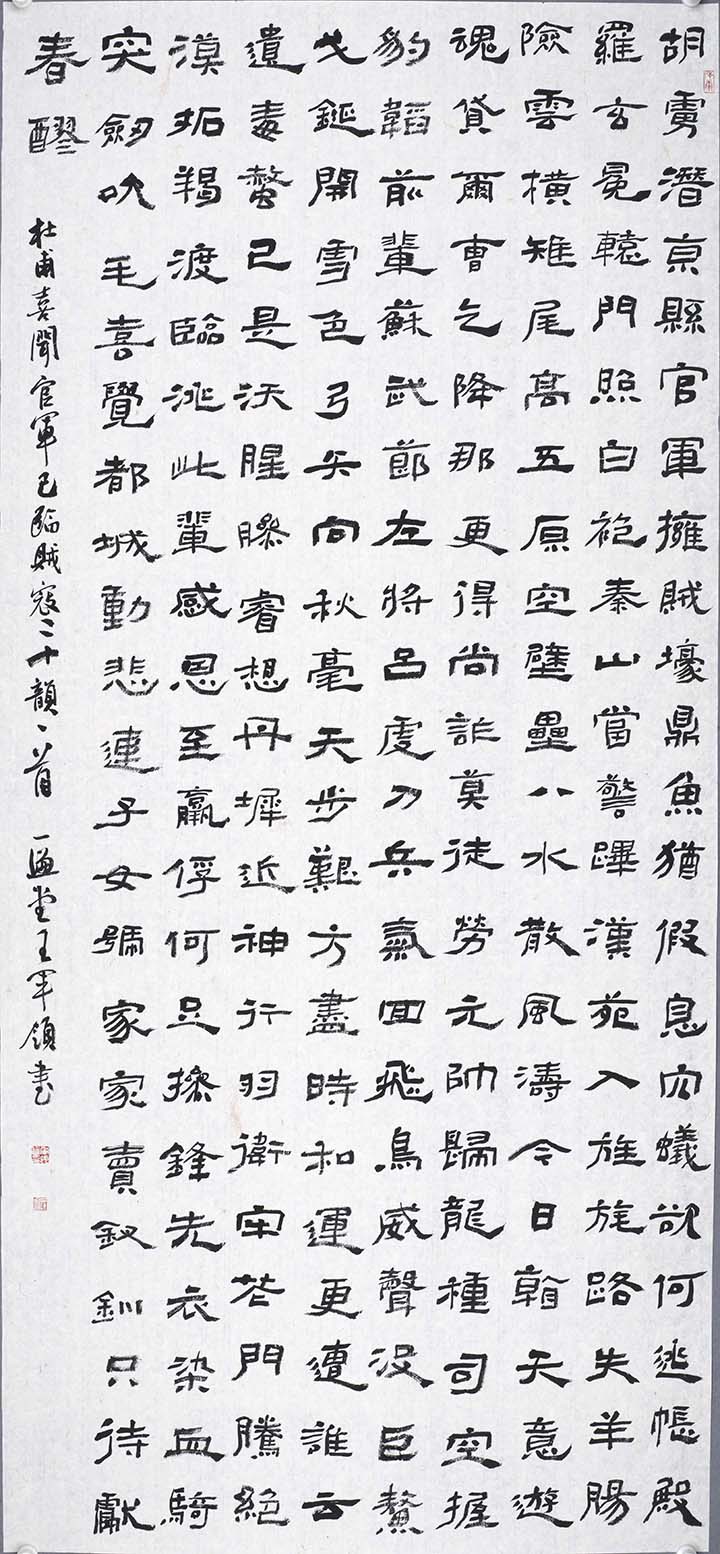 胡虜潛京縣官軍擁賊壕鼎魚猶假息穴蟻欲何逃帳殿
羅玄冕轅門照白袍秦山當警蹕漢苑入旌旄路失羊腸
險雲橫雉尾高五原空壁壘八水散風濤今日看天意遊
魂貸爾曹乞降那更得尚詐莫徒勞元帥歸龍種司空握
豹韜前輩蘇武節左將呂虔刀兵氣回飛鳥威聲沒巨鰲
戈鋋開雪色弓矢向秋毫天步艱方盡時和運更遭誰云
遺毒螫已是沃腥臊睿想丹墀近神行羽衛牢花門騰絕
漠拓羯渡臨洮此輩感恩至羸俘何足操鋒先衣染血騎
突劍吹毛喜覺都城動悲連子女號家家賣釵釧只待獻
春醪
杜甫喜聞官軍已臨賊寇二十韻一首 堂王軍領書